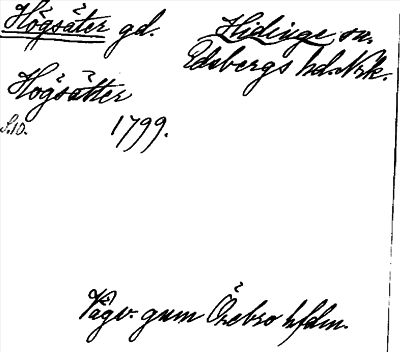 Högsäter gd. Hidinge sn.
Edsbergs hd. Nrk.
Högsätter
S.10. 1799.
Vägv. gnm Örebro hfdm.